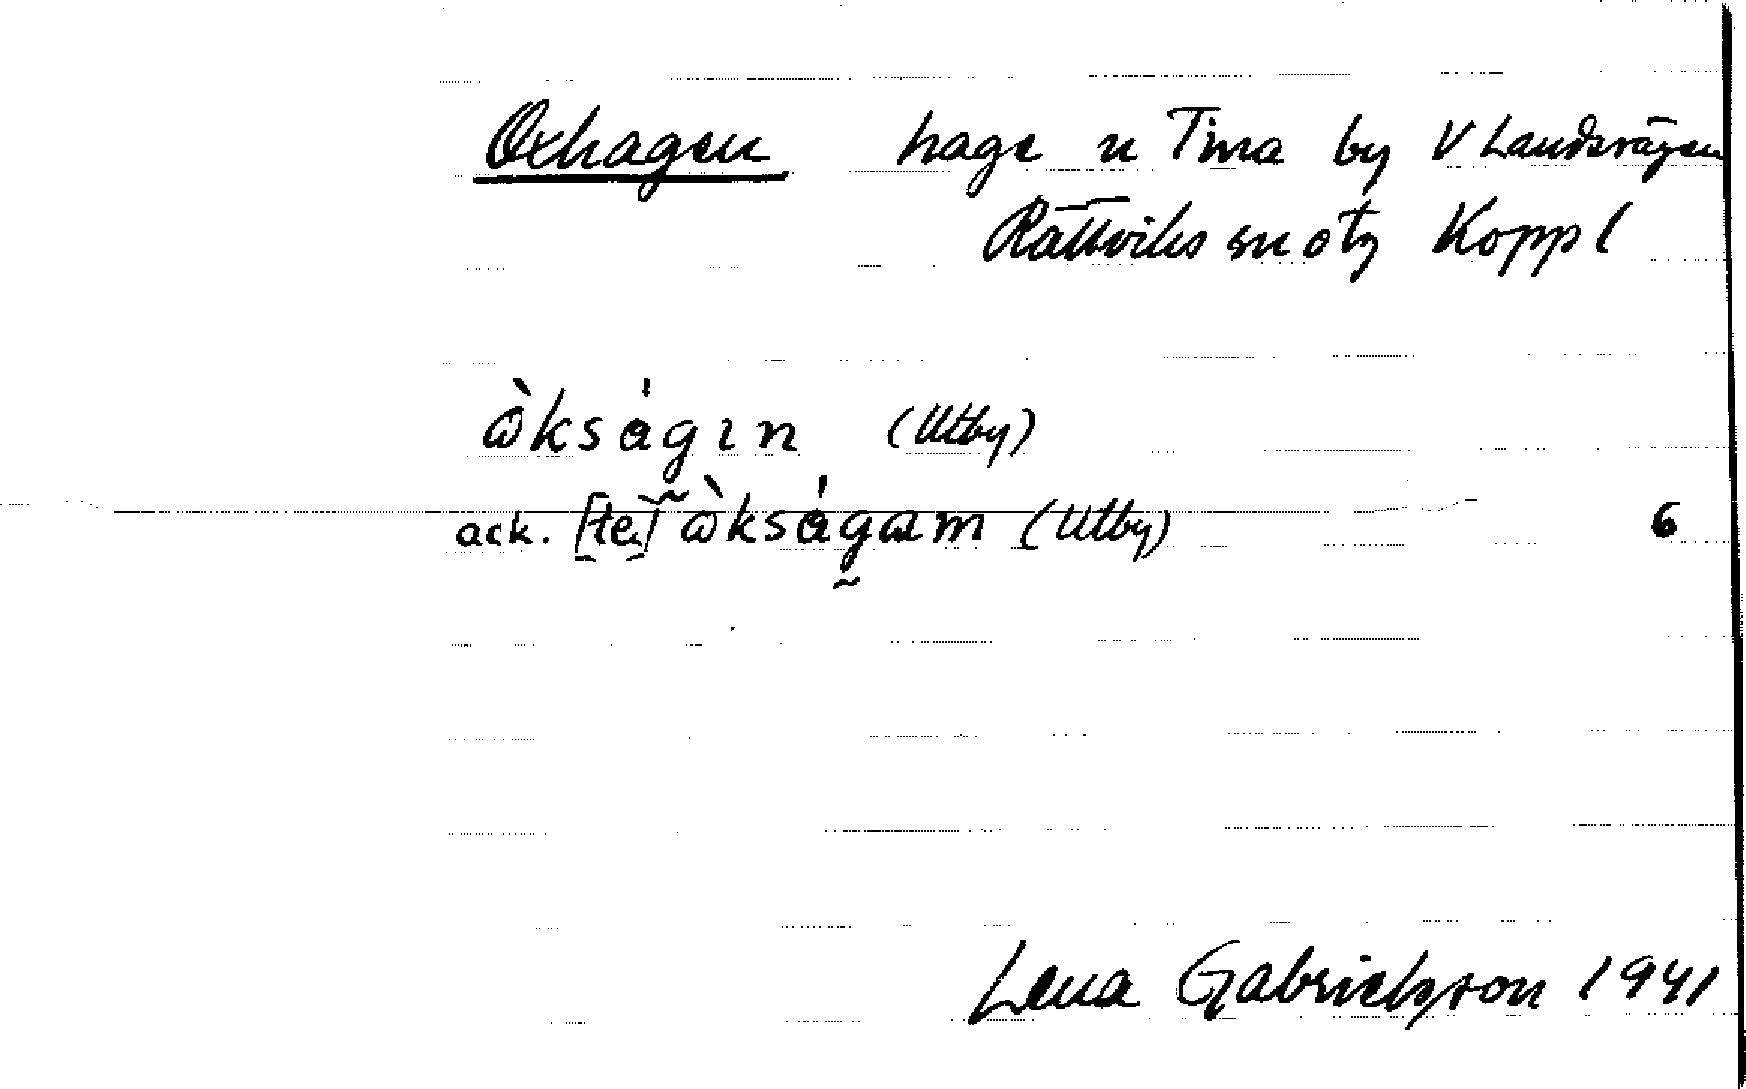 Oxhagen hage n Tina by V Landsvägen
Rättviks sn o tg Koppl
ὼkságın (Utby)
ack. [te] ὼkságωm (Utby) 6
Lena Gabrielsson 1941